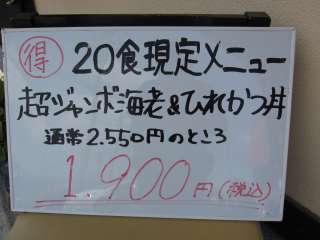 得 20食現定メニュー
超ジャンボ海老&ひれかつ丼
通常2.550円のところ
1.900円(税込)